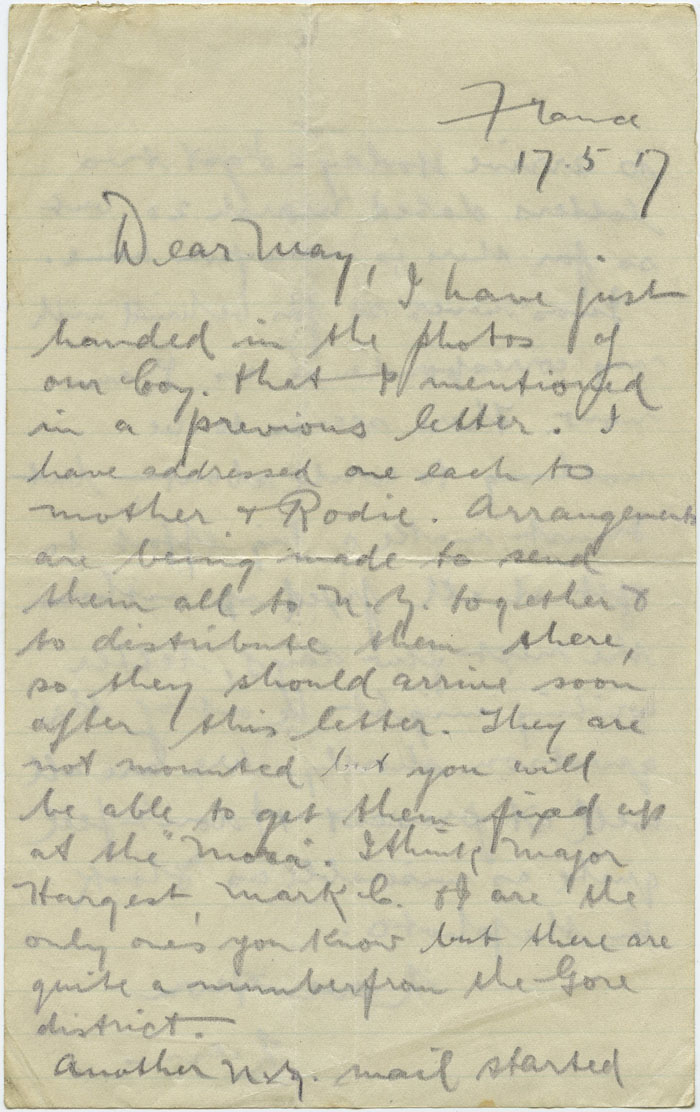 France
17.5.17
Dear May,
I have just
handed in the photos of
our Coy. that I mentioned
in a previous letter. I
have addressed one each to
mother & Rodie. Arrangements
are being made to send
them all to N.Z. together &
to distribute them there,
so they should arrive soon
after this letter. They are
not mounted but you will
be able to get them fixed up
at the "Mora". I think Major
Hargest, Mark C. & I are the
only ones you know but there are
quite a number from the Gore
district.
Another N.Z. mail started